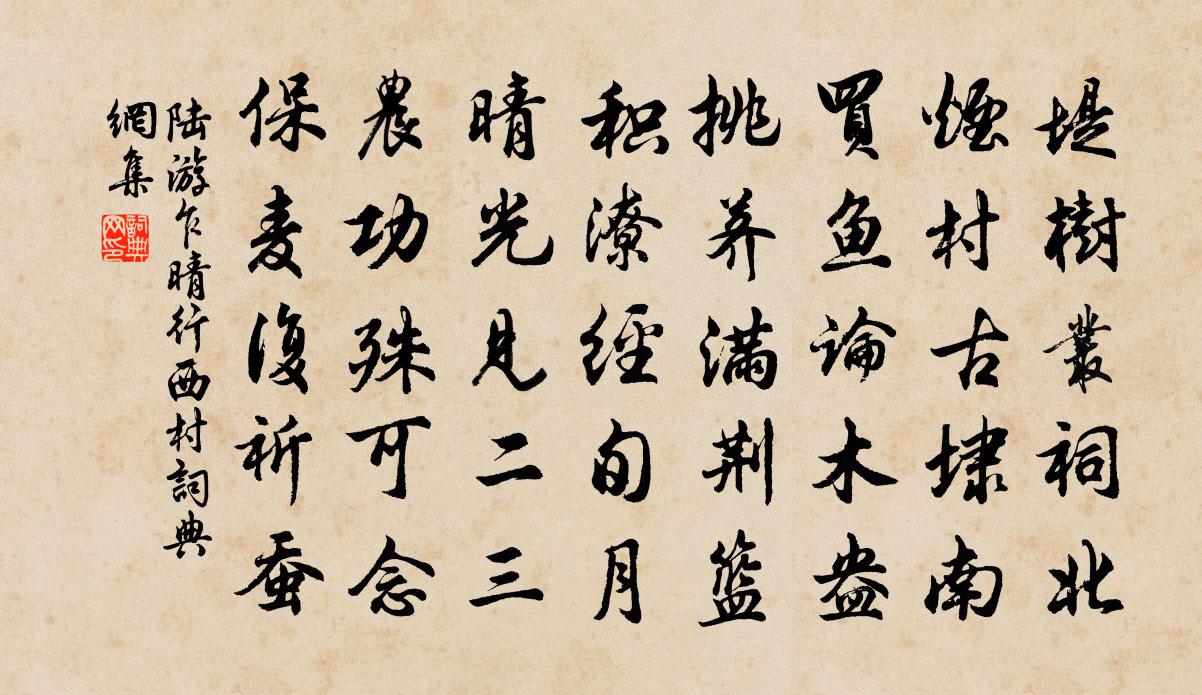 堤樹叢祠北
煙村古埭南
買鱼論木盎
挑荠滿荆籃
积潦經旬月
晴光見二三
農功殊可念
保麦復祈蚕
陆游乍晴行西村詞典
網集
詞典
网印